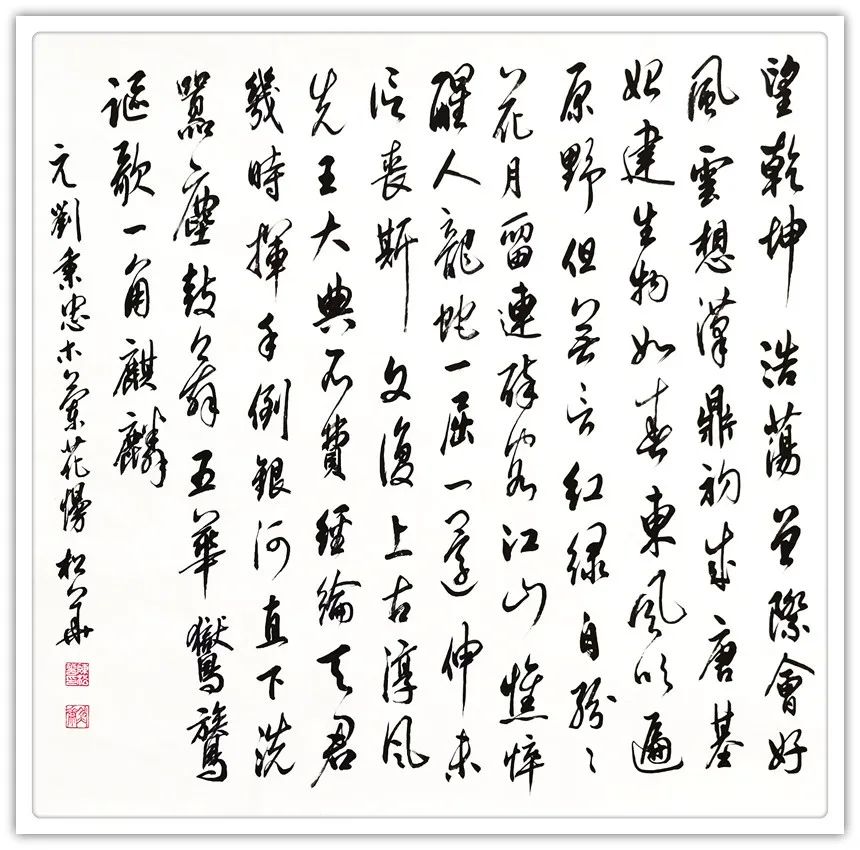 望乾坤浩蕩曾際會好
風雲想漢鼎初成唐基
始建生物如春東風吹遍
原野但無言紅緑自紛〻
花月留連醉客江山憔悴
醒人龍蛇一屈一還伸未
信喪斯文復上古淳風
先王大典不費經綸天君
幾時揮手倒銀河直下洗
囂塵鼓舞五華鸑鷟
謳歌一角麒麟
元劉秉忠木蘭花慢 松